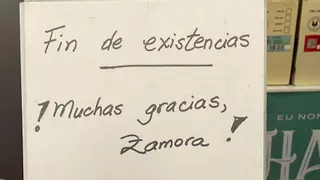 Fin de existencias
¡Muchas gracias,
Zamora!
EU NON
HA